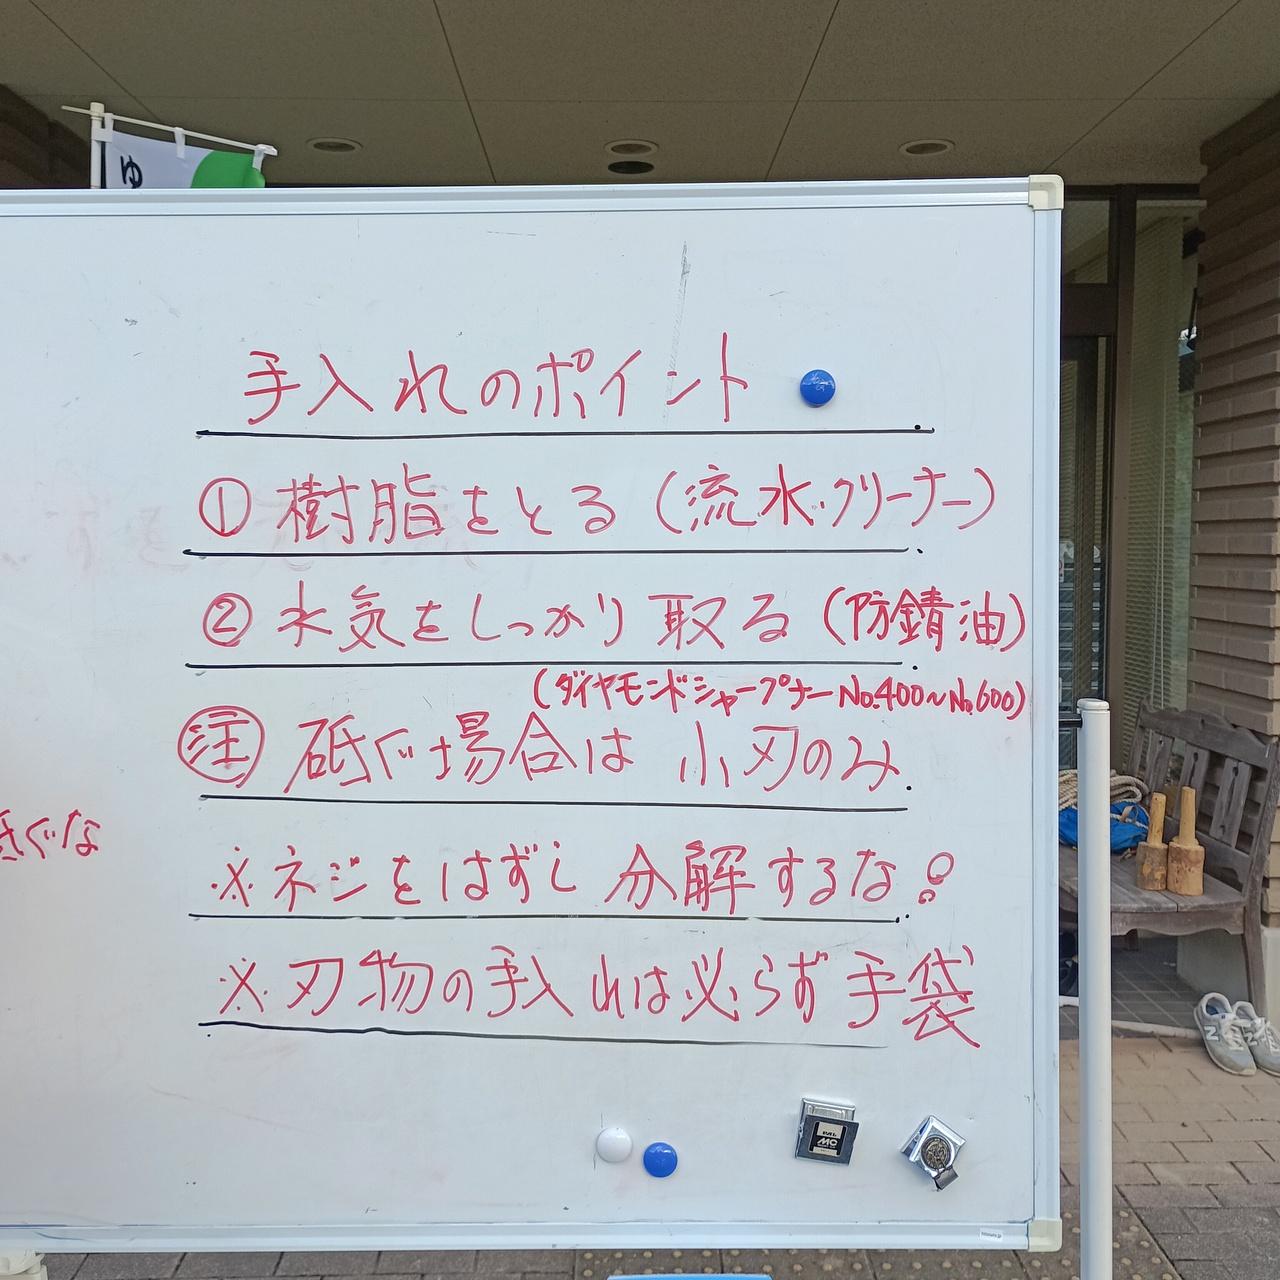 ゆ
手入れのポイント
① 樹脂をとる (流水・クリーナー)
② 水気をしっかり取る (防錆油)
(ダイヤモンドシャープナー No.400～No.600)
注 砥ぐ場合は 小刃のみ
ぐな
※ネジをはずし 分解するな!
※刃物の手入れは必らず手袋
MC
N